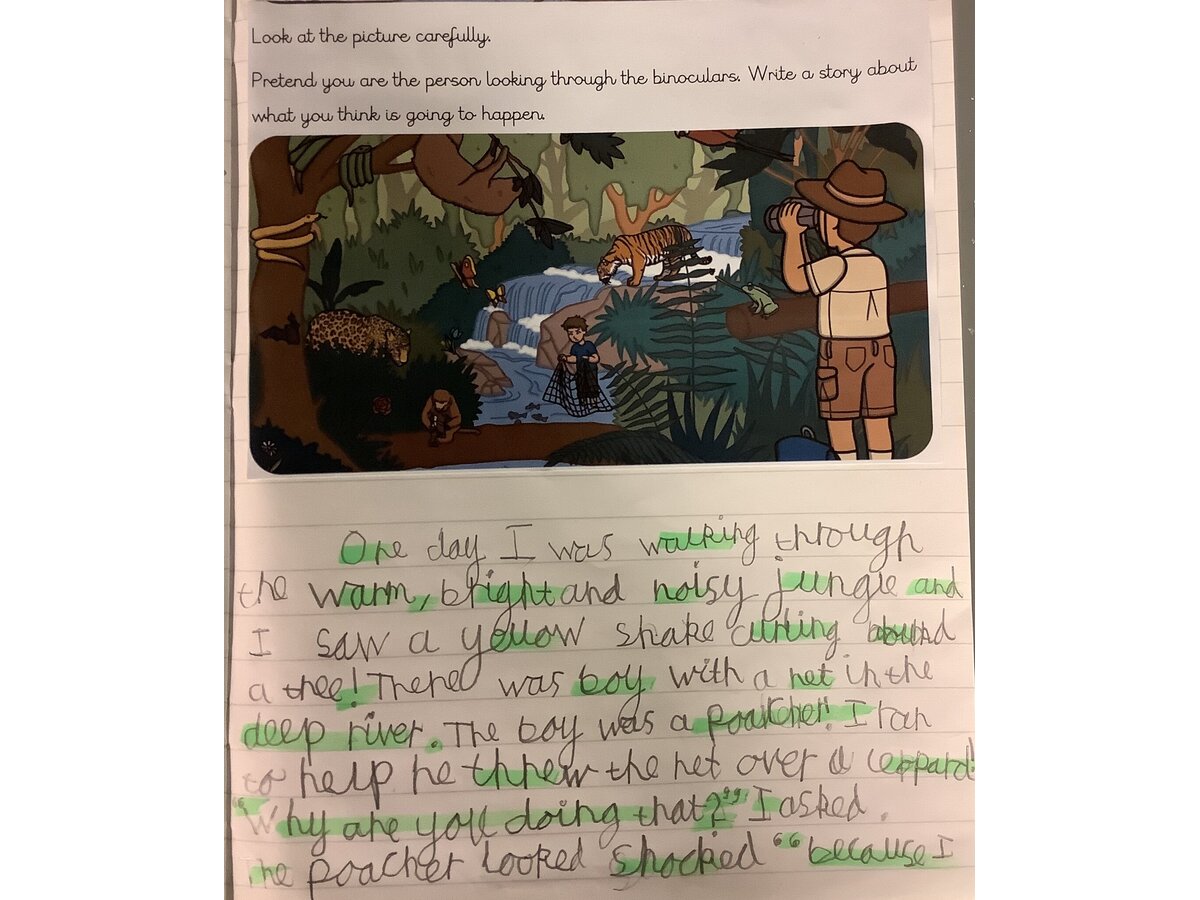 Look at the picture carefully.
Pretend you are the person looking through the binoculars. Write a story about
what you think is going to happen.
One day I was walking through
the warm, bright and noisy jungle and
I saw a yellow snake curling around
a tree! There was boy with a net in the
deep river. The boy was a poatcher! I ran
to help he threw the net over a leppard.
"Why are you doing that?" I asked.
The poacher looked shocked "because I